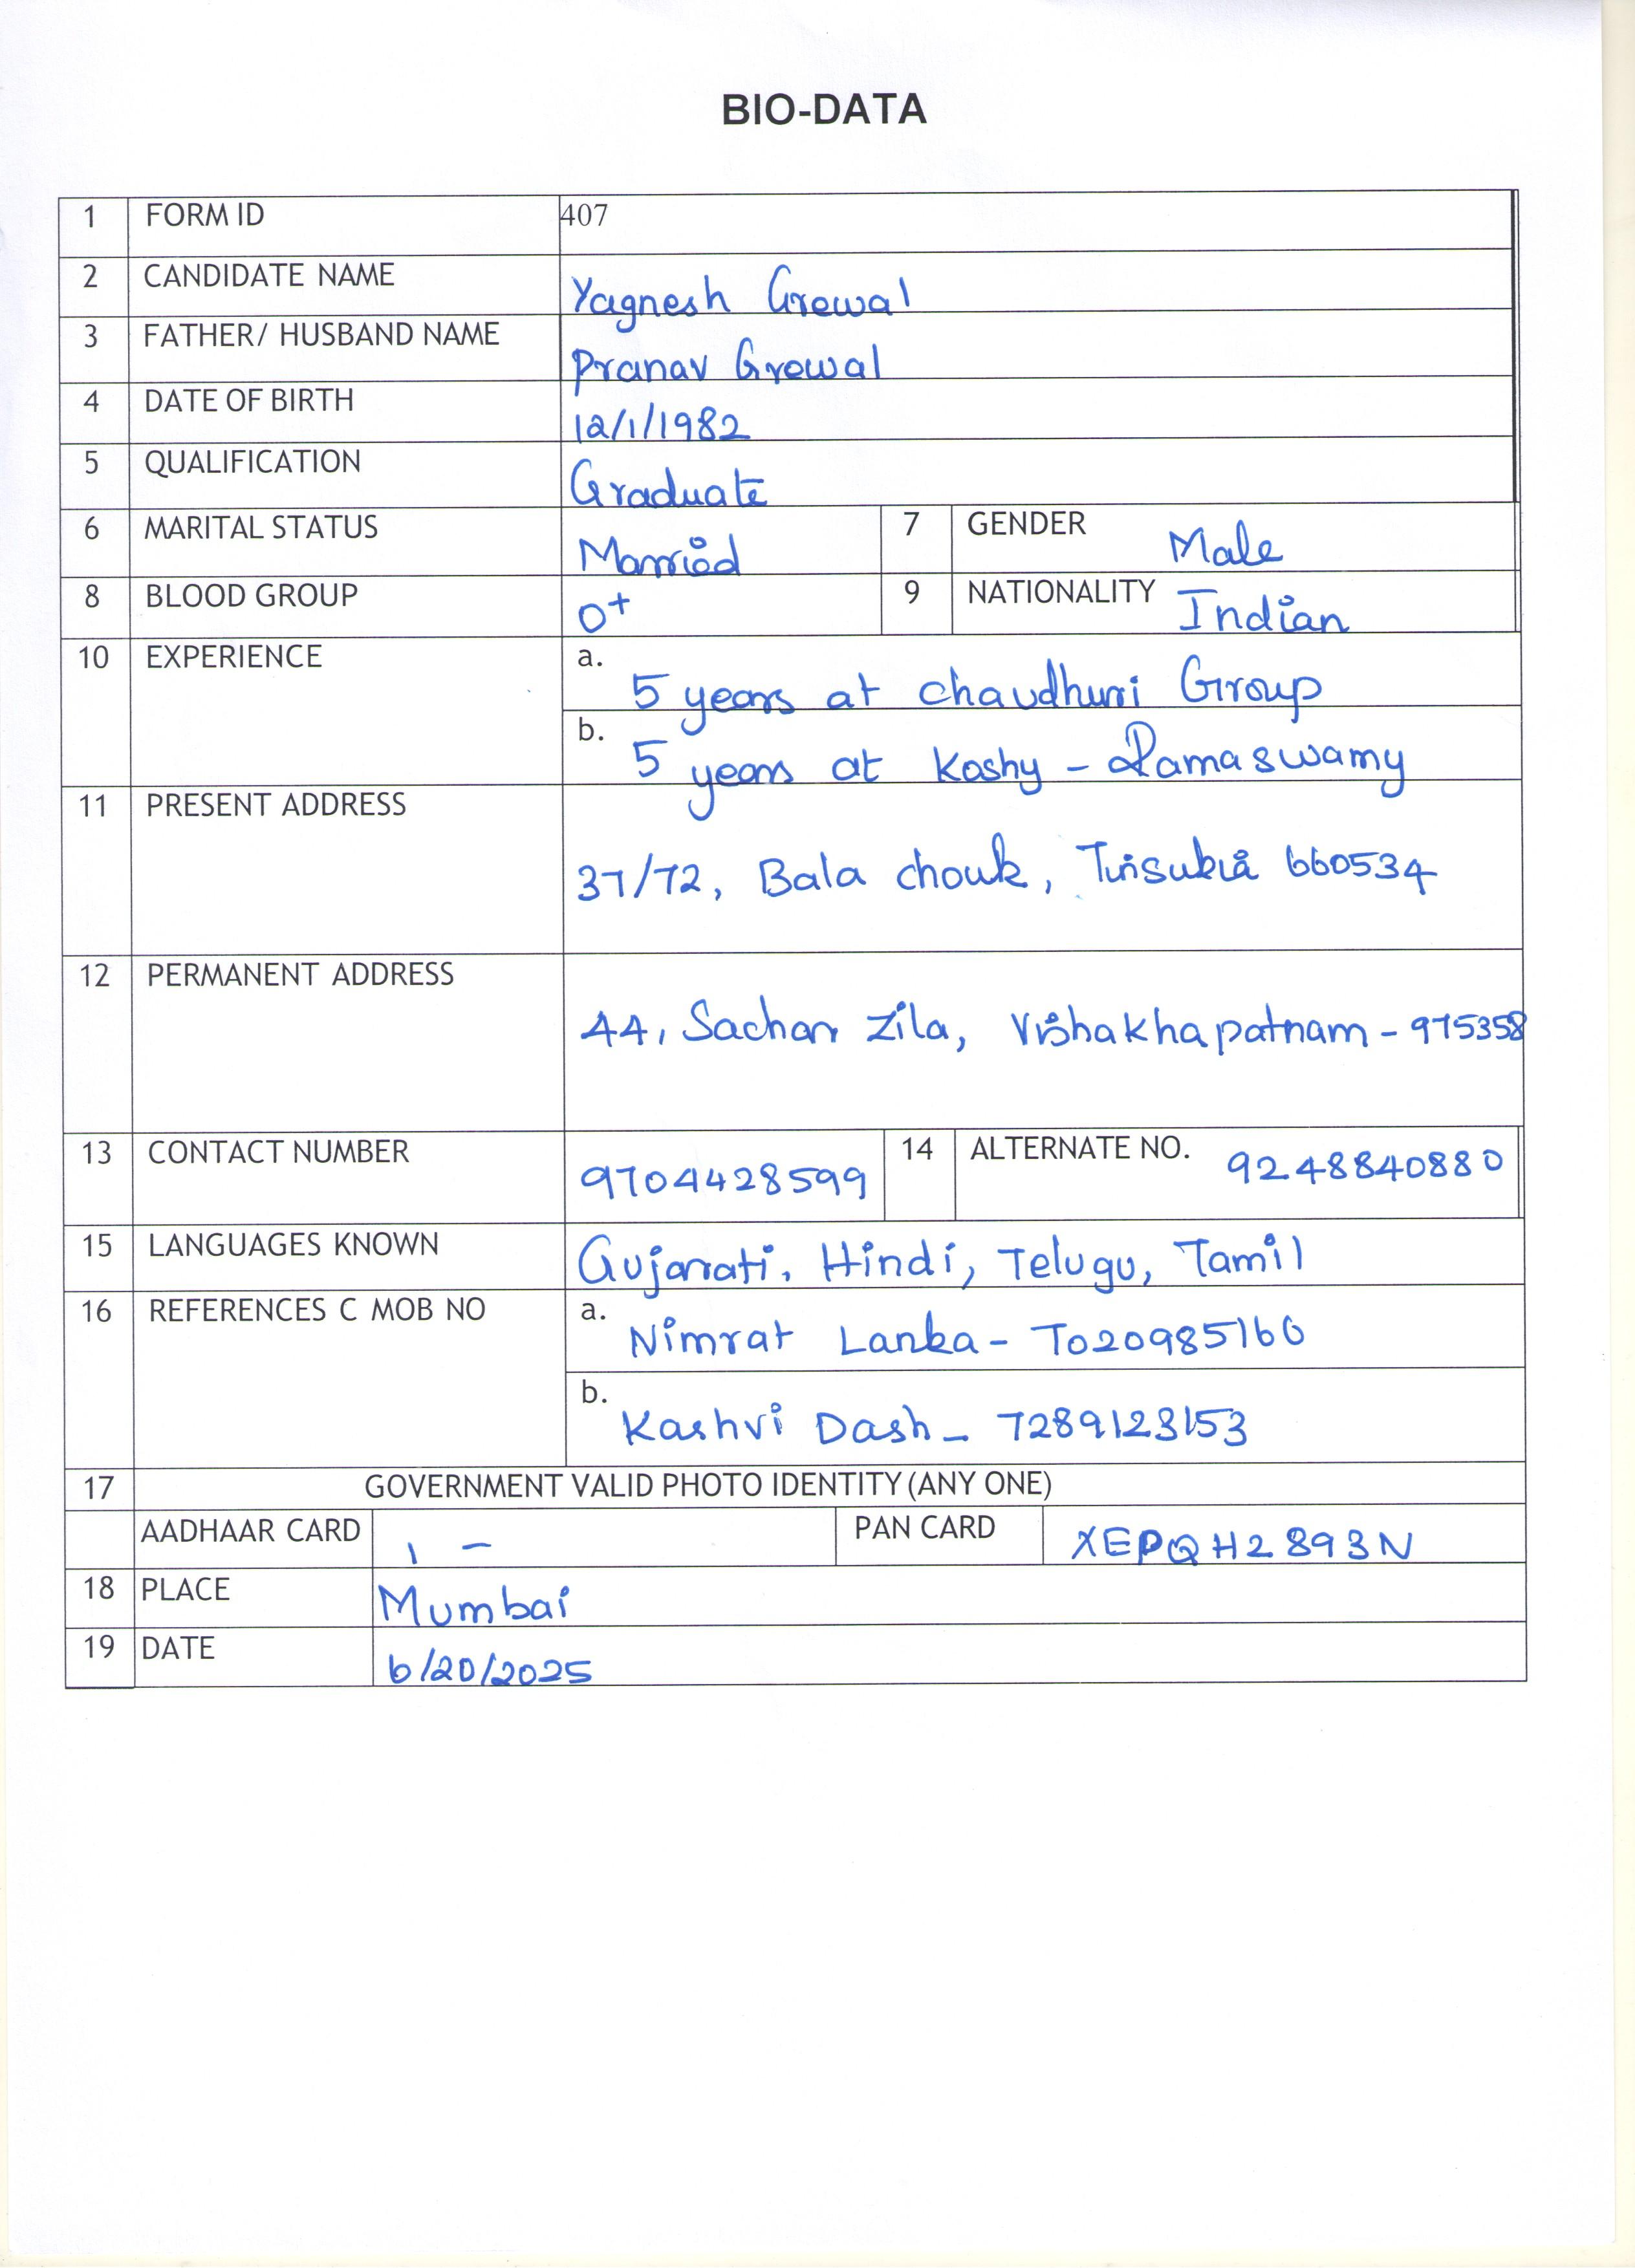 BIO-DATA
1 FORM ID 407
2 CANDIDATE NAME Yagnesh Grewal
3 FATHER/ HUSBAND NAME Pranav Grewal
4 DATE OF BIRTH 12/1/1982
5 QUALIFICATION Graduate
6 MARITAL STATUS Married 7 GENDER Male
8 BLOOD GROUP O+ 9 NATIONALITY Indian
10 EXPERIENCE a. 5 years at Chaudhuri Group
b. 5 years at Koshy - Ramaswamy
11 PRESENT ADDRESS
37/72, Bala chouk, Tinsukia 660534
12 PERMANENT ADDRESS
44, Sachar Zila, Vishakhapatnam - 975358
13 CONTACT NUMBER 9704428599 14 ALTERNATE NO. 9248840880
15 LANGUAGES KNOWN Gujarati, Hindi, Telugu, Tamil
16 REFERENCES C MOB NO a. Nimrat Lanka - 7020985160
b. Kashvi Dash - 7289123153
17 GOVERNMENT VALID PHOTO IDENTITY (ANY ONE)
AADHAAR CARD - PAN CARD XEPQH2893N
18 PLACE Mumbai
19 DATE 6/20/2025